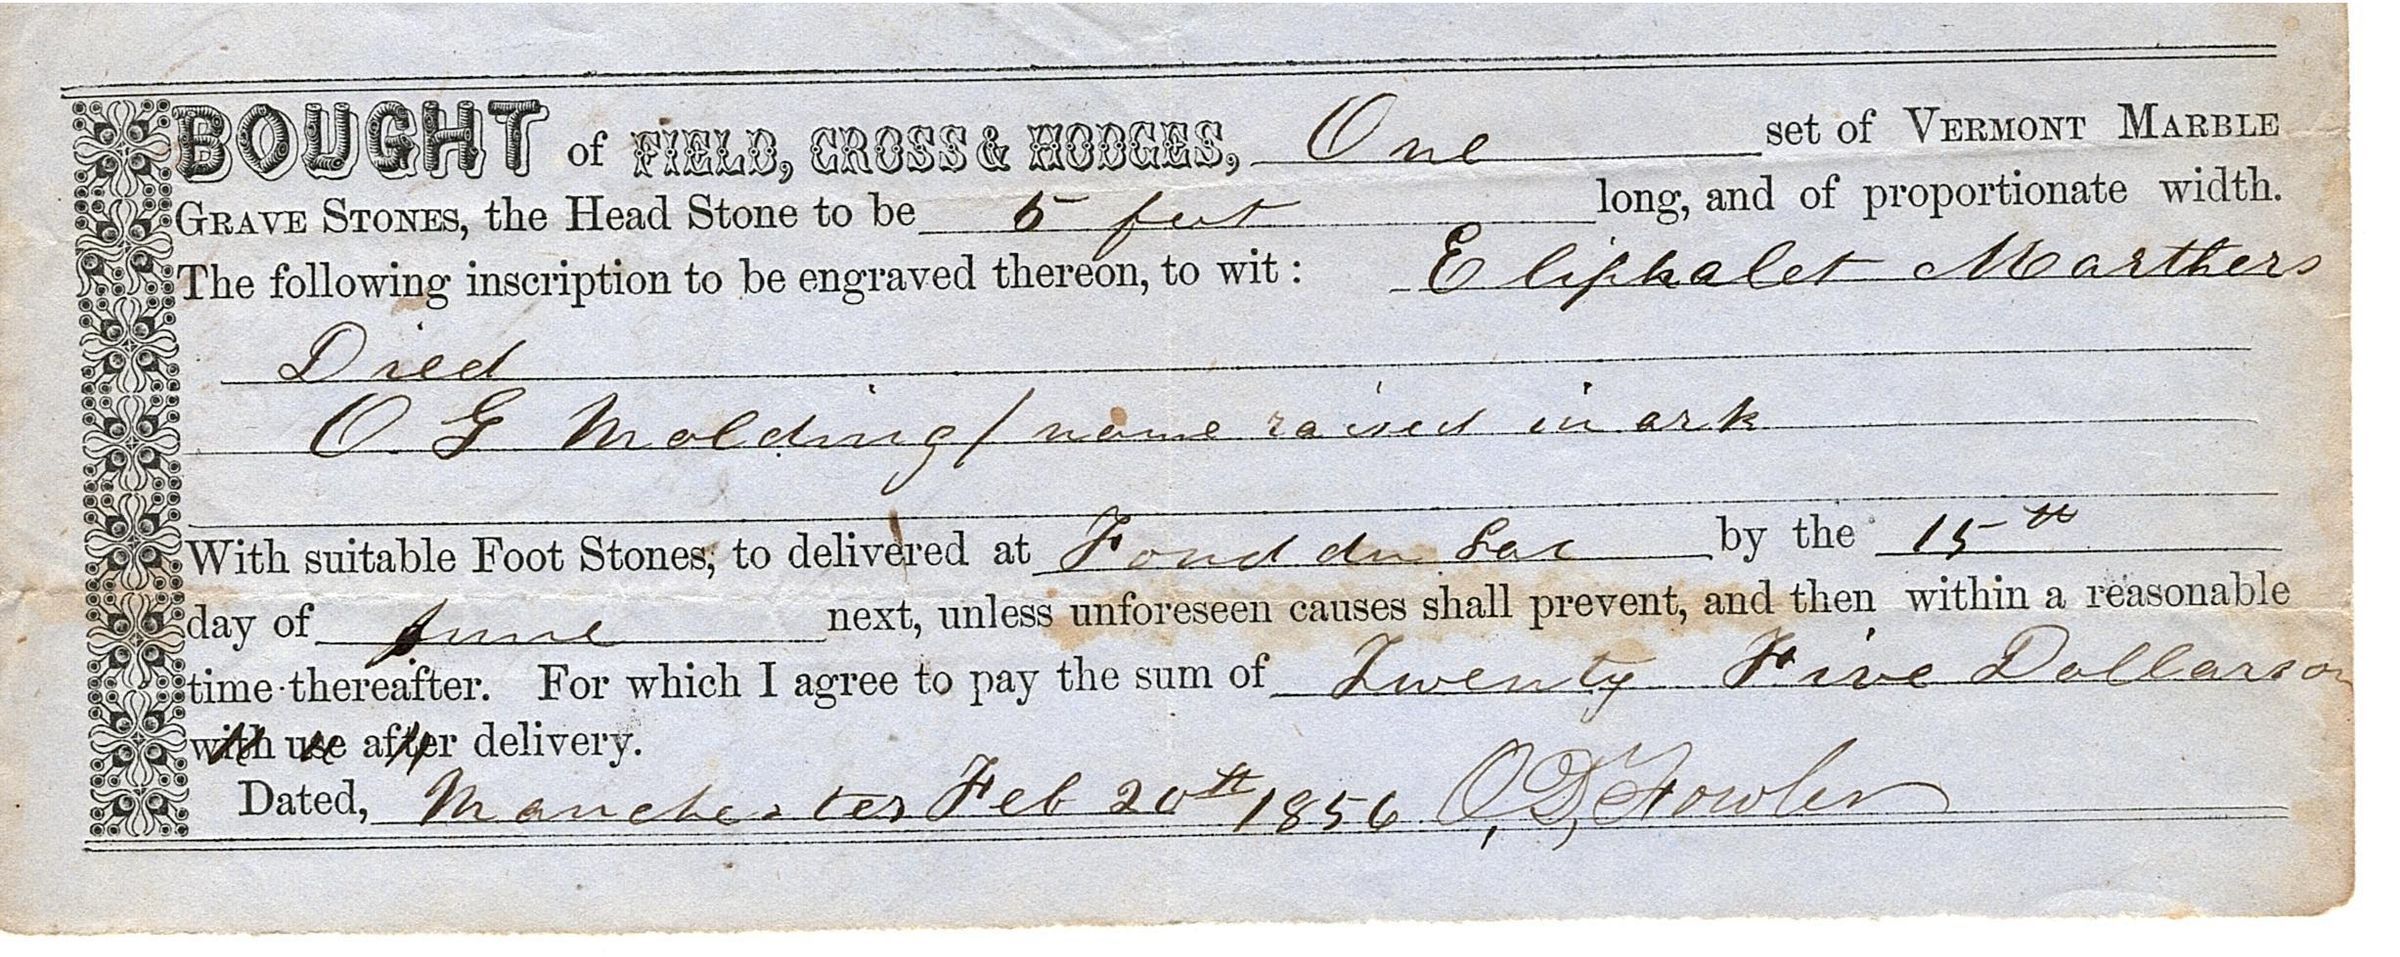 BOUGHT of FIELD, CROSS & HODGES, One set of VERMONT MARBLE
GRAVE STONES, the Head Stone to be 5 feet long, and of proportionate width.
The following inscription to be engraved thereon, to wit: Eliphalet Marthers
Died
O G Molding / name raised in ark
With suitable Foot Stones, to delivered at Fond du Lac by the 15th
day of June next, unless unforeseen causes shall prevent, and then within a reasonable
time thereafter. For which I agree to pay the sum of Twenty Five Dollars on
with use after delivery.
Dated, Manchester Feb 20th 1856 O, D, Fowler